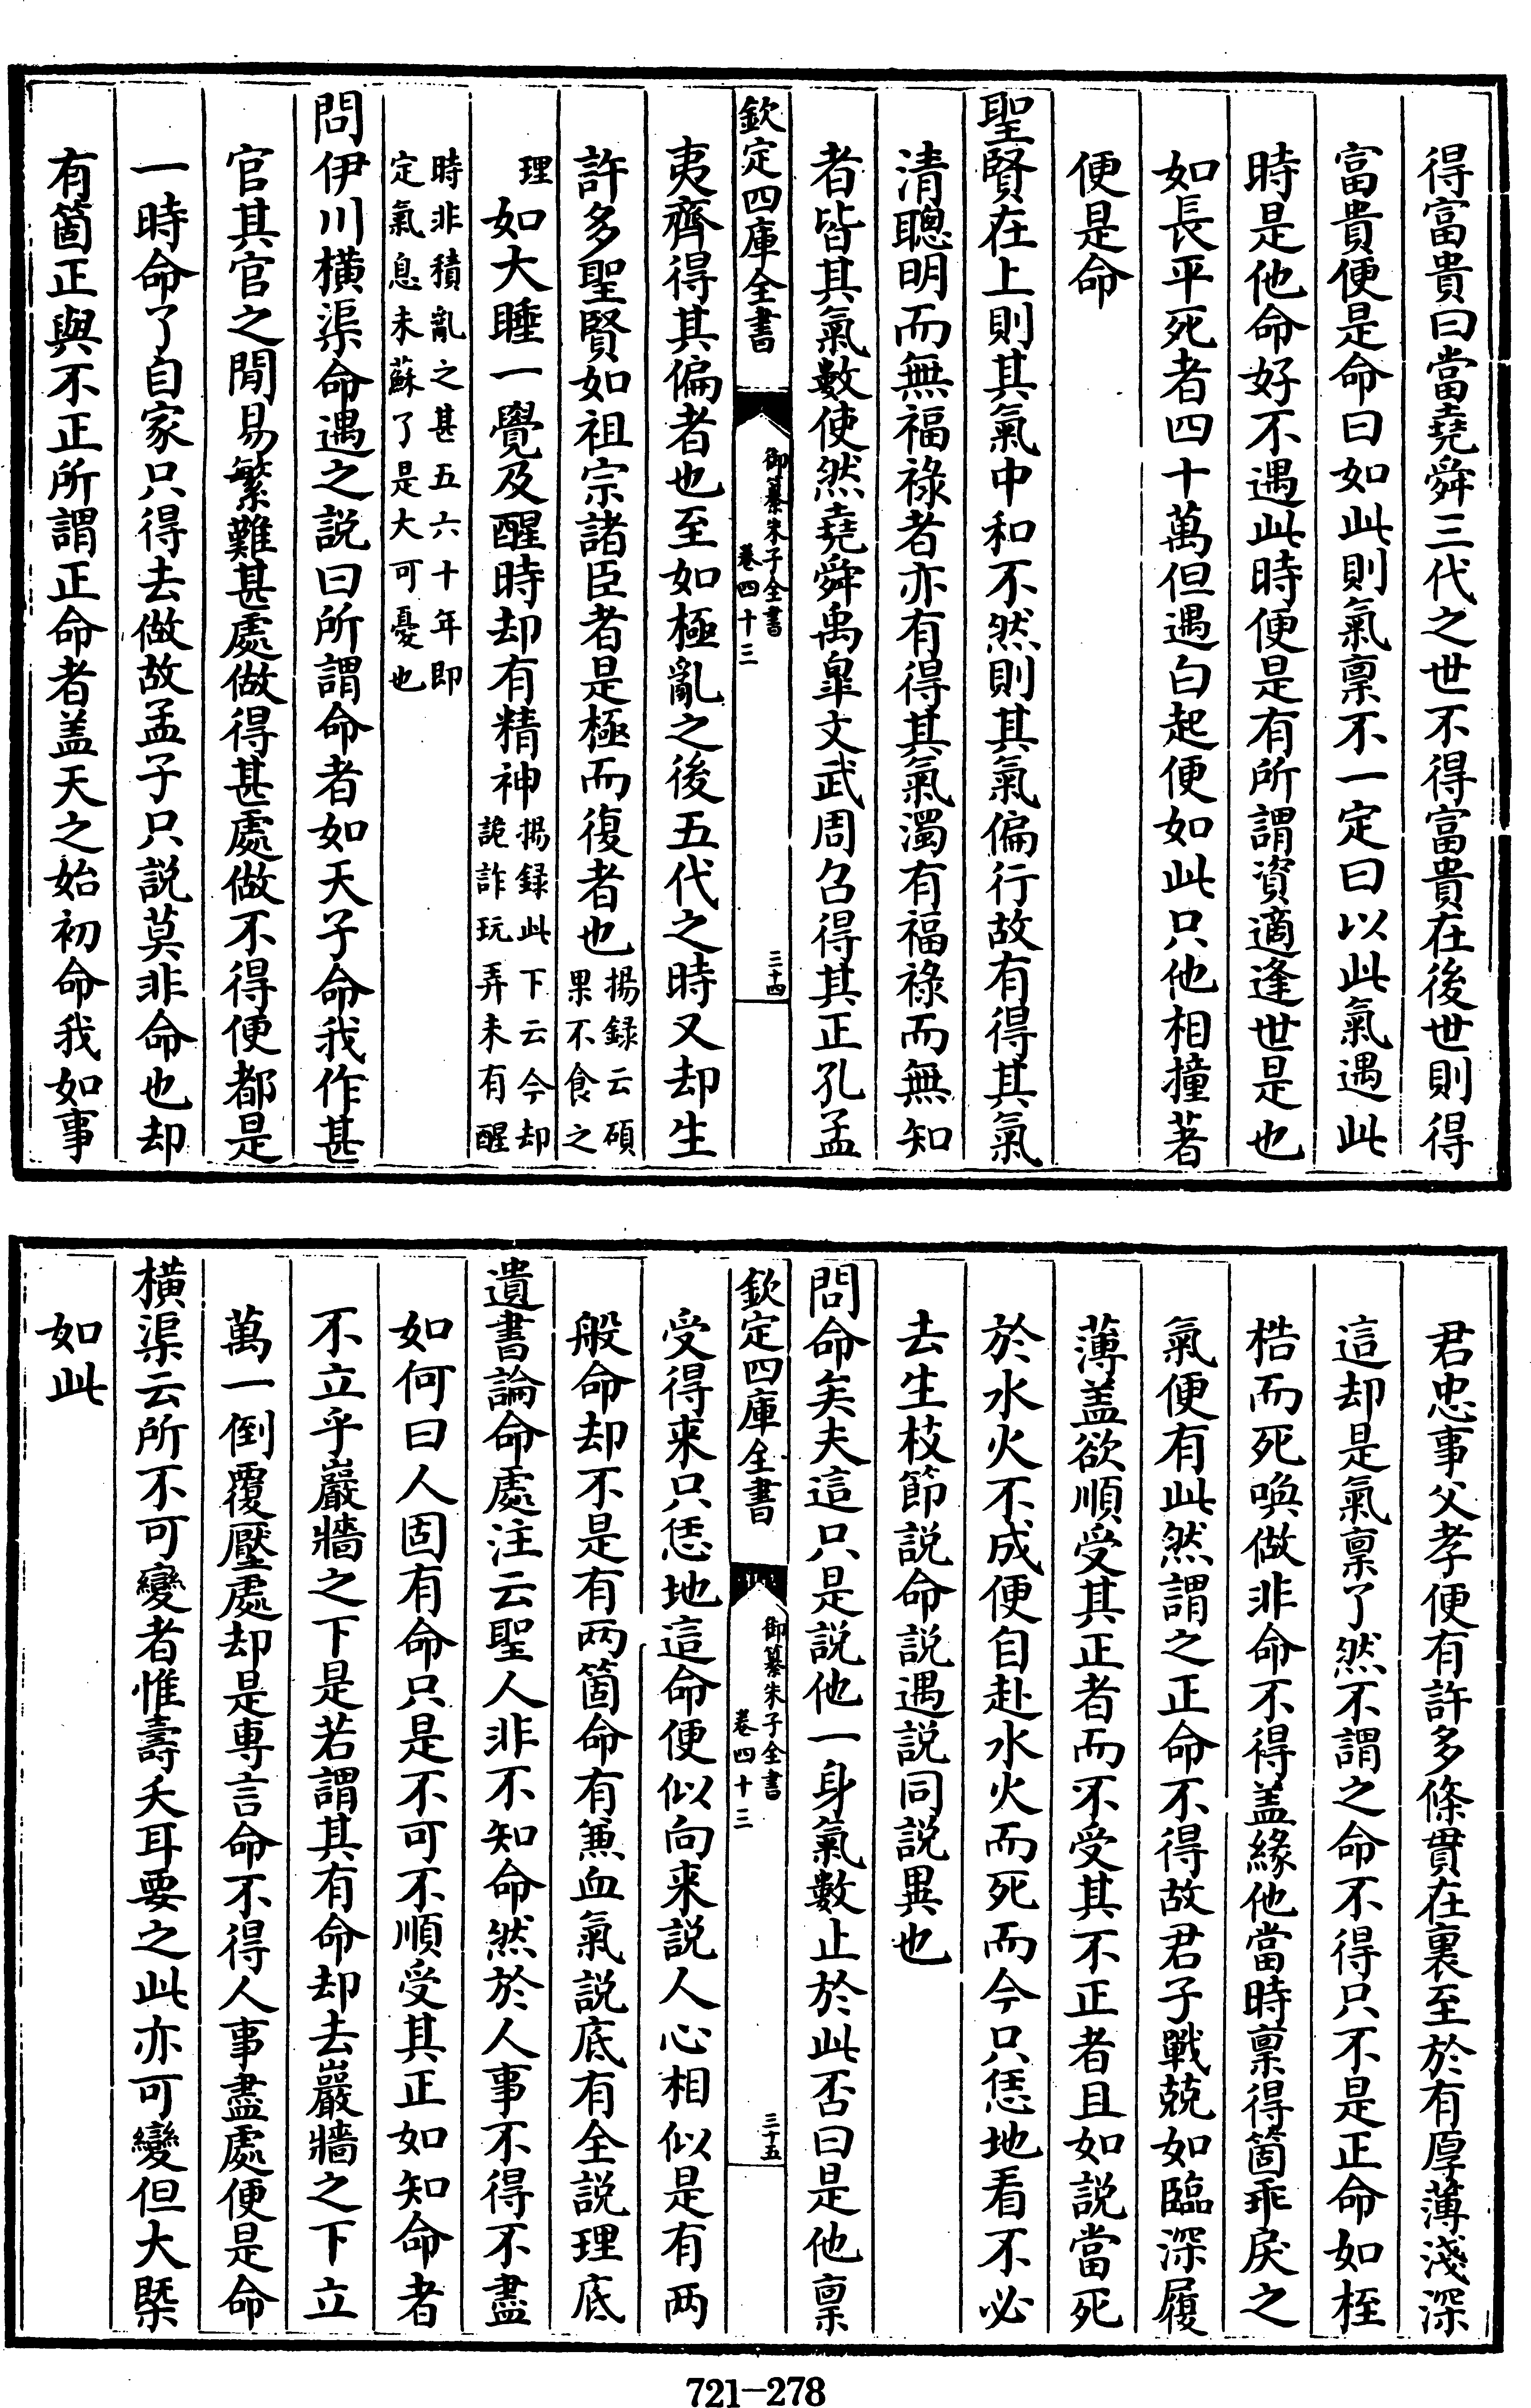 得富貴曰當堯舜三代之世不得富貴在後世則得
富貴便是命曰如此則氣稟不一定曰以此氣遇此
時是他命好不遇此時便是有所謂資適逢世是也
如長平死者四十萬但遇白起便如此只他相撞著
便是命
聖賢在上則其氣中和不然則其氣偏行故有得其氣
清聰明而無福祿者亦有得其氣濁有福祿而無知
者皆其氣數使然堯舜禹臯文武周召得其正孔孟
欽定四庫全書
御纂朱子全書
卷四十三
三十四
夷齊得其偏者也至如極亂之後五代之時又却生
許多聖賢如祖宗諸臣者是極而復者也
揚録云碩
果不食之
理
如大睡一覺及醒時却有精神
揚録此下云今却
詭詐玩弄未有醒
時非積亂之甚五六十年即
定氣息未蘇了是大可憂也
問伊川橫渠命遇之説曰所謂命者如天子命我作甚
官其官之閒易繁難甚處做得甚處做不得便都是
一時命了自家只得去做故孟子只説莫非命也却
有箇正與不正所謂正命者盖天之始初命我如事
君忠事父孝便有許多條貫在裏至於有厚薄淺深
這却是氣稟了然不謂之命不得只不是正命如桎
梏而死喚做非命不得盖緣他當時稟得箇乖戾之
氣便有此然謂之正命不得故君子戰兢如臨深履
薄盖欲順受其正者而不受其不正者且如說當死
於水火不成便自赴水火而死而今只恁地看不必
去生枝節説命説遇説同説異也
問命矣夫這只是説他一身氣數止於此否曰是他稟
欽定四庫全書
御纂朱子全書
卷四十三
三十五
受得来只恁地這命便似向来説人心相似是有两
般命却不是有两箇命有兼血氣説底有全説理底
遺書論命處注云聖人非不知命然於人事不得不盡
如何曰人固有命只是不可不順受其正如知命者
不立乎巖牆之下是若謂其有命却去巖牆之下立
萬一倒覆壓處却是專言命不得人事盡處便是命
橫渠云所不可變者惟壽夭耳要之此亦可變但大槩
如此
721—278